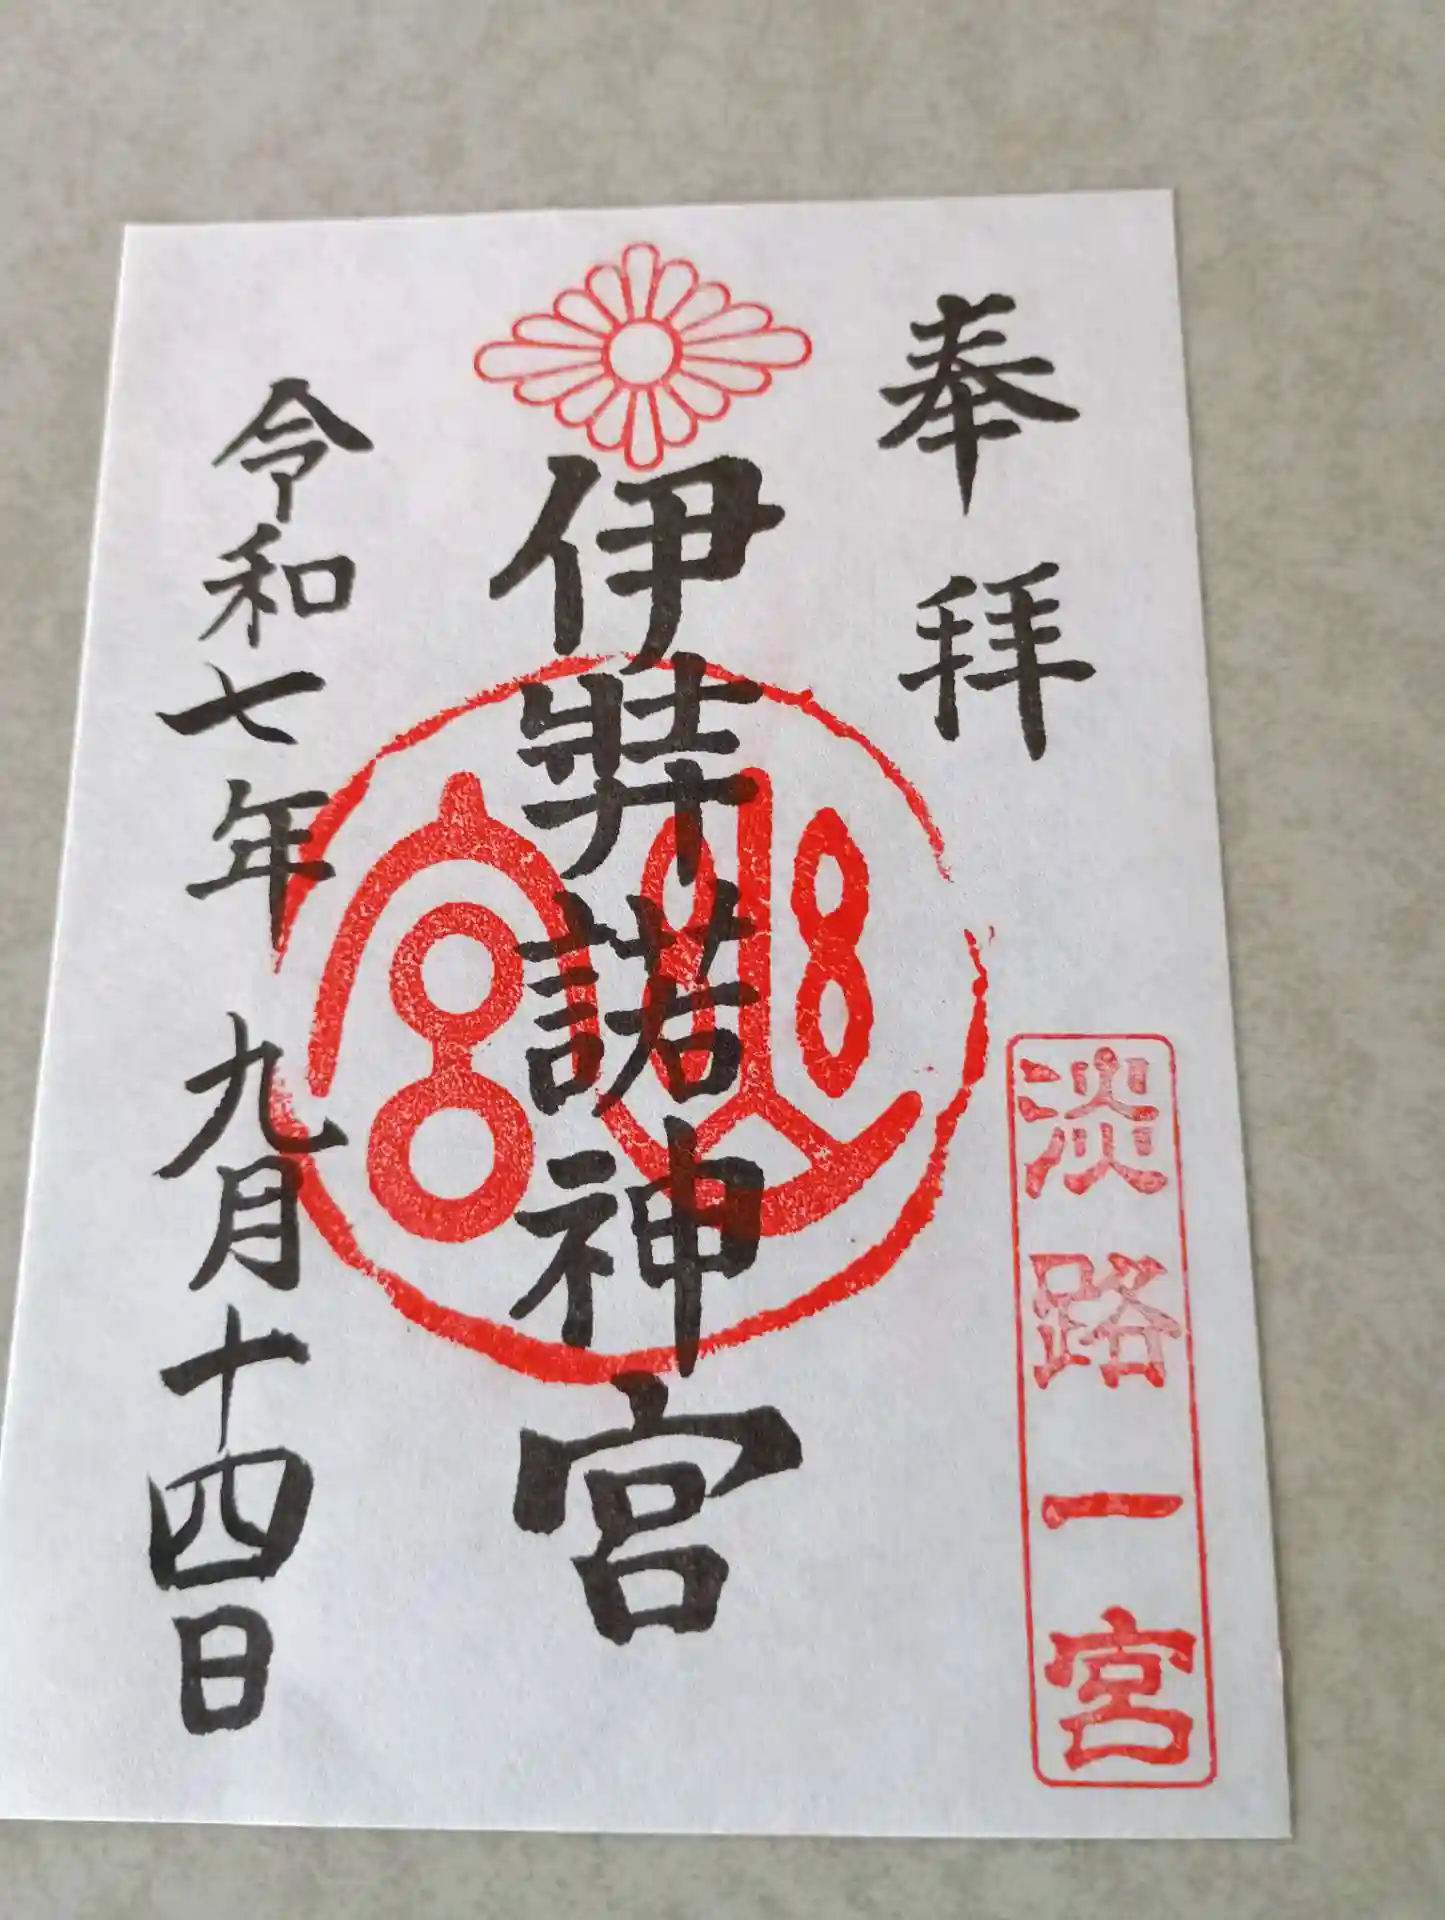 奉拝
淡路一宮
伊弉諾神宮
令和七年九月十四日